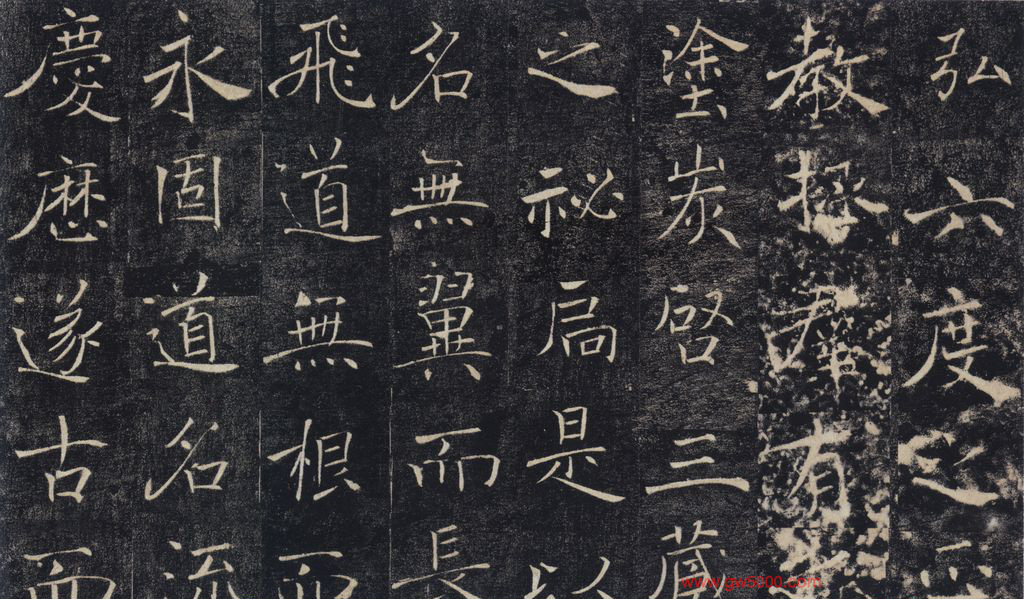 弘六度之正
教拯群有之
塗炭啓三藏
之祕扃是以
名無翼而長
飛道無根而
永固道名流
慶歷遂古而
www.gw5000.com